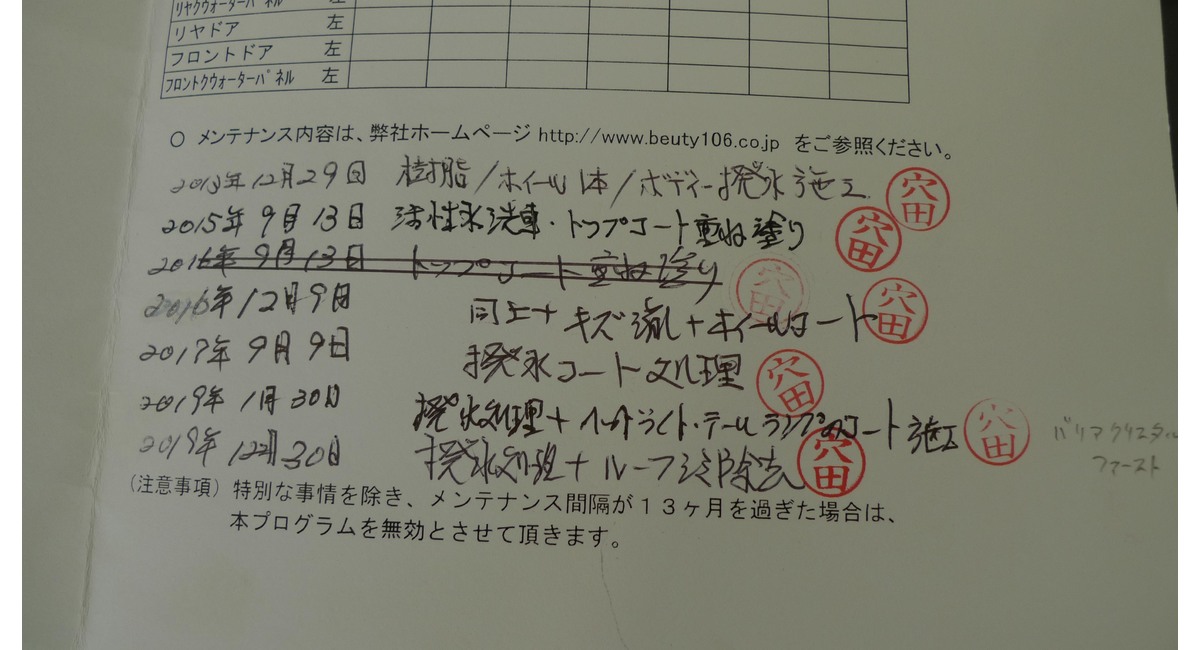 リヤクウォーターパネル 左
リヤドア 左
フロントドア 左
フロントクウォーターパネル 左
○ メンテナンス内容は、弊社ホームページ http://www.beuty106.co.jp をご参照ください。
2013年12月29日 樹脂/ホイール1本/ボディー撥水施工 穴田
2015年9月13日 活性水洗車・トップコート重ね塗り 穴田
2016年9月13日 トップコート重ね塗り 穴田
2016年12月9日 同上+キズ消し+ホイールコート 穴田
2017年9月9日 撥水コート処理 穴田
2019年1月30日 撥水処理+ヘッドライト・テールランプのコート施工 穴田
バリアクリスタル
ファースト
2019年12月30日 撥水処理+ルーフ除去 穴田
(注意事項) 特別な事情を除き、メンテナンス間隔が13ヶ月を過ぎた場合は、
本プログラムを無効とさせて頂きます。